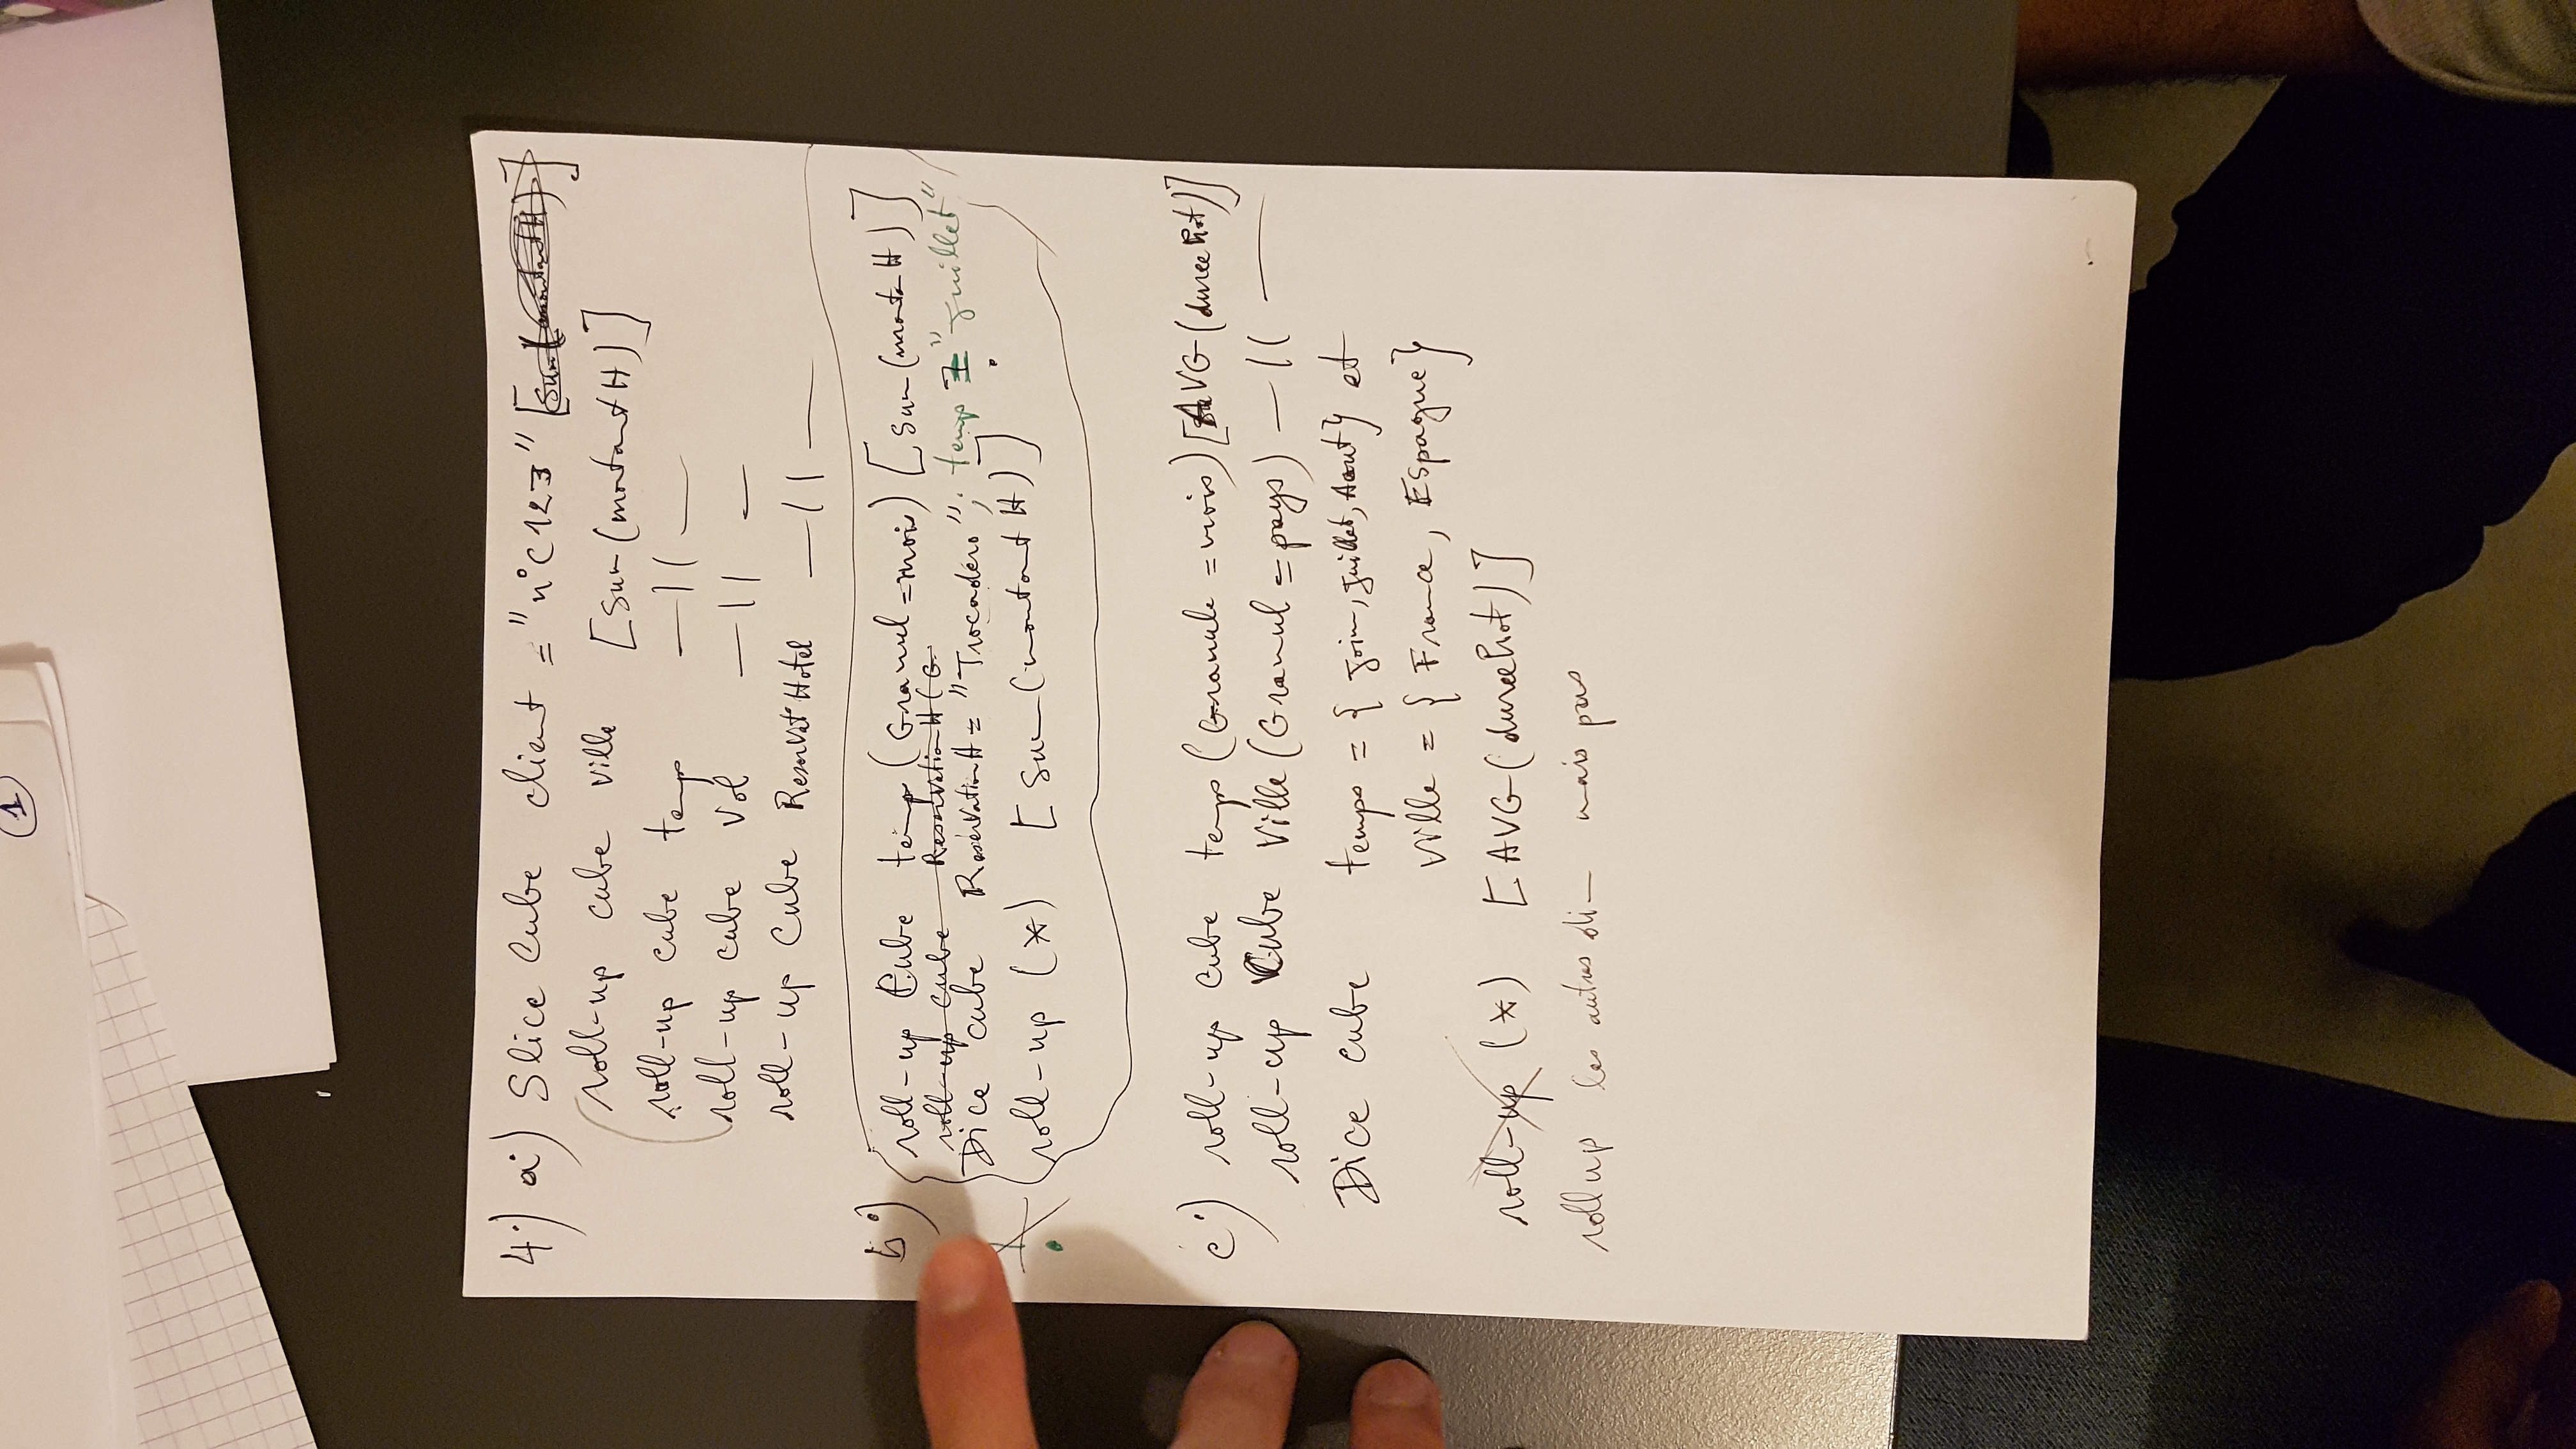 1
4.) a.) Slice Cube client = "n°C123" [Sum(montant H)]
roll-up cube ville [Sum(montant H)]
roll-up cube temp —||—
roll-up cube Vol —||—
roll-up Cube Reservat° Hotel —||—
b.) roll-up Cube temp (Granul = mois) [Sum(montan H)]
roll-up cube Reservation H (G
Dice cube Réservation H = "Trocadéro"; temp = "juillet"
roll-up (*) [Sum(montant H)]
c.) roll-up cube temps (Granule = mois) [AVG (duree Prot)]
roll-up Cube Ville (Granul = pays) —||—
Dice cube temps = { Join, Juillet, Aout} et
Ville = { France, Espagne}
roll-up (*) [AVG (duree Prot)]
roll up les autres dim mais pas